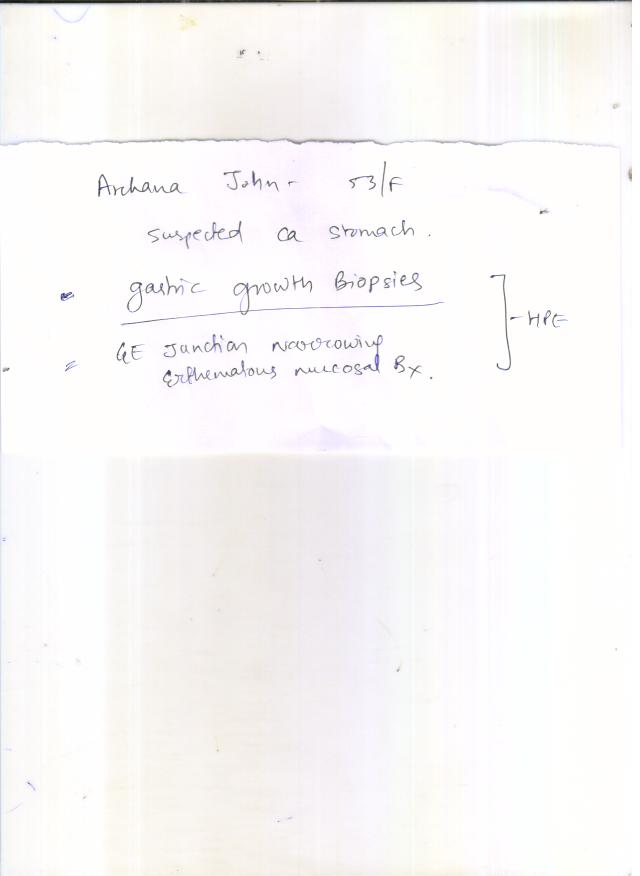 Archana John - 53/F
suspected ca stomach.
gastric growth Biopsies
GE Junction narrowing
Erthematous mucosal Bx.
- HPE